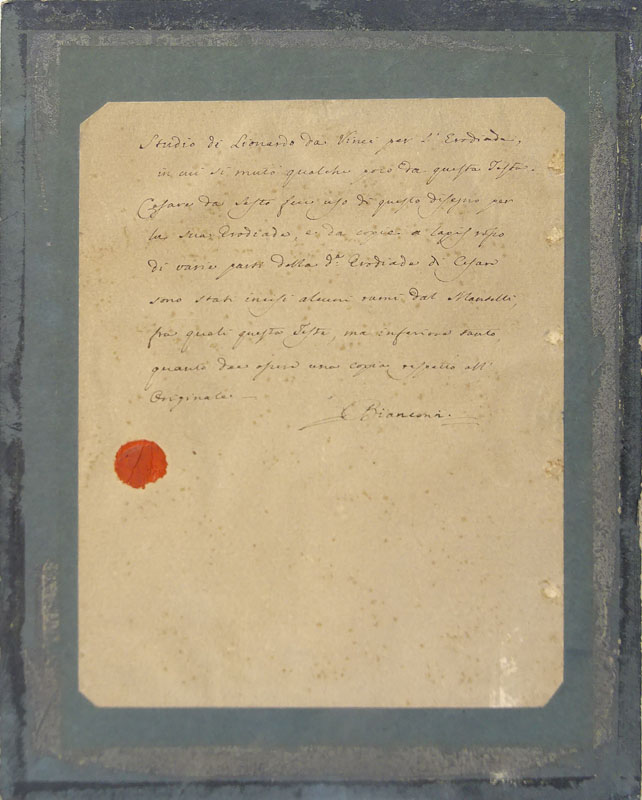 Studio di Lionardo da Vinci per l'Erodiade,
in cui si mutò qualche poco da questa Testa.
Cesare da Sesto fece uso di questo disegno per
la sua Erodiade, e da copie a lapis rosso
di varie parti della d.ª Erodiade di Cesare
sono stati incisi alcuni rami dal
fra quali questa Testa, ma inferiore tanto
quanto dee essere una copia rispetto all'
Originale.
C Bianconi.